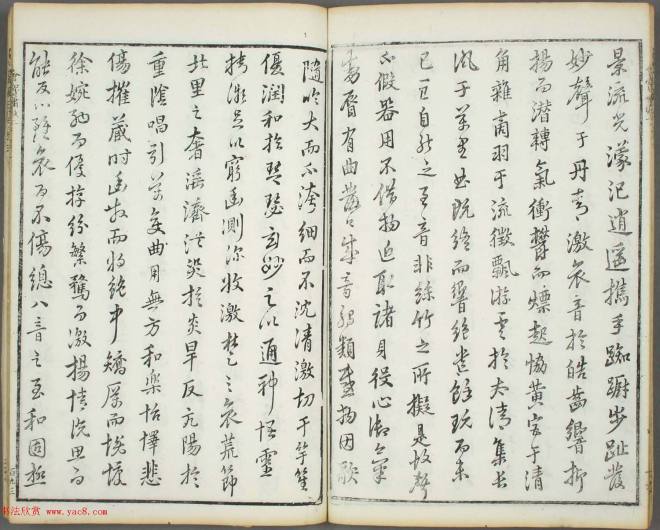 景流光濛汜逍遥攜手踟蹰步趾發
妙聲于丹脣激哀音於皓齒響抑
揚而潛轉氣衝鬱而熛起協黃宮于清
角雜商羽于流徵飄游雲於太清集長
風于萬里曲既終而響絕遺餘玩而未
已良自然之至音非絲竹之所擬是故聲
不假器用不借物近取諸身役心御氣
動脣有曲發口成音觸類感物因歌
隨吟大而不洿細而不沈清激切于竽笙
優潤和於琴瑟玄妙足以通神悟靈
精微足以窮幽測深收激楚之哀荒節
北里之奢淫濟洪災於炎旱反亢陽於
重陰唱引萬變曲用無方和樂怡懌悲
傷摧藏時幽散而將絕中矯厲而慨慷
徐婉約而優游紛繁騖而激揚情既思而
能反心雖哀而不傷總八音之至和固極
书法欣赏
www.yac8.com